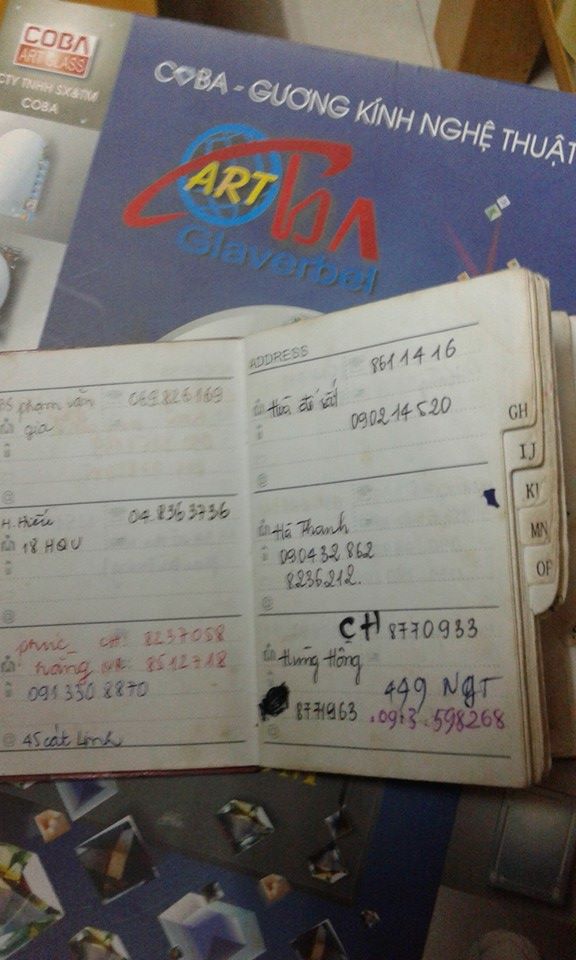 COBA
ART GLASS
CTY TNHH SX&TM
COBA
COBA - GƯƠNG KÍNH NGHỆ THUẬT
ART
CoBA
Glaverbel
BS phạm văn
gia
069.826.169
H. Hiếu
04.8363736
18 HQV
phúc_ CH: 8237058
hoàng NR: 8512718
091 350 8870
@ 45 cát Linh
ADDRESS
8611416
Hoà
090214520
@
Hà Thanh
0904.32.862
8236212.
@
CH 8770933
Hưng Hồng
449 NGT
8771963
.0913.598268
@
GH
IJ
KL
MN
OP